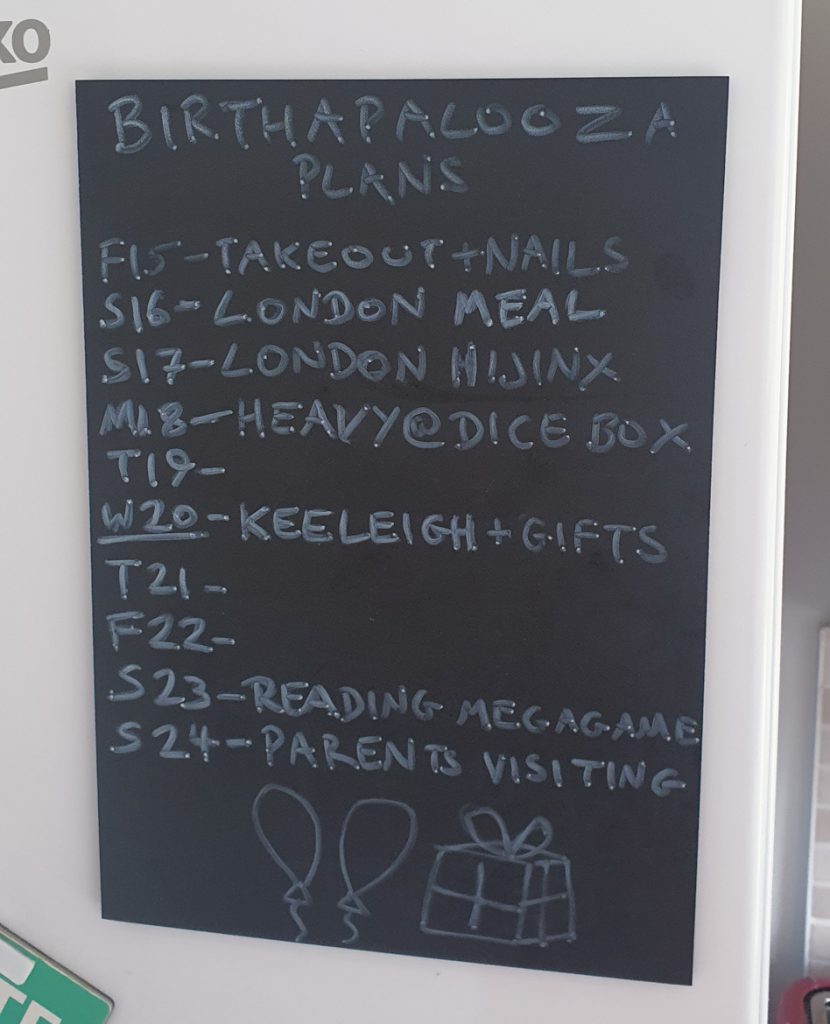 KO
BIRTHAPALOOZA
PLANS
F15-TAKEOUT+NAILS
S16-LONDON MEAL
S17-LONDON HIJINX
M18-HEAVY@DICE BOX
T19-
W20-KEELEIGH+GIFTS
T21-
F22-
S23-READING MEGAGAME
S24-PARENTS VISITING